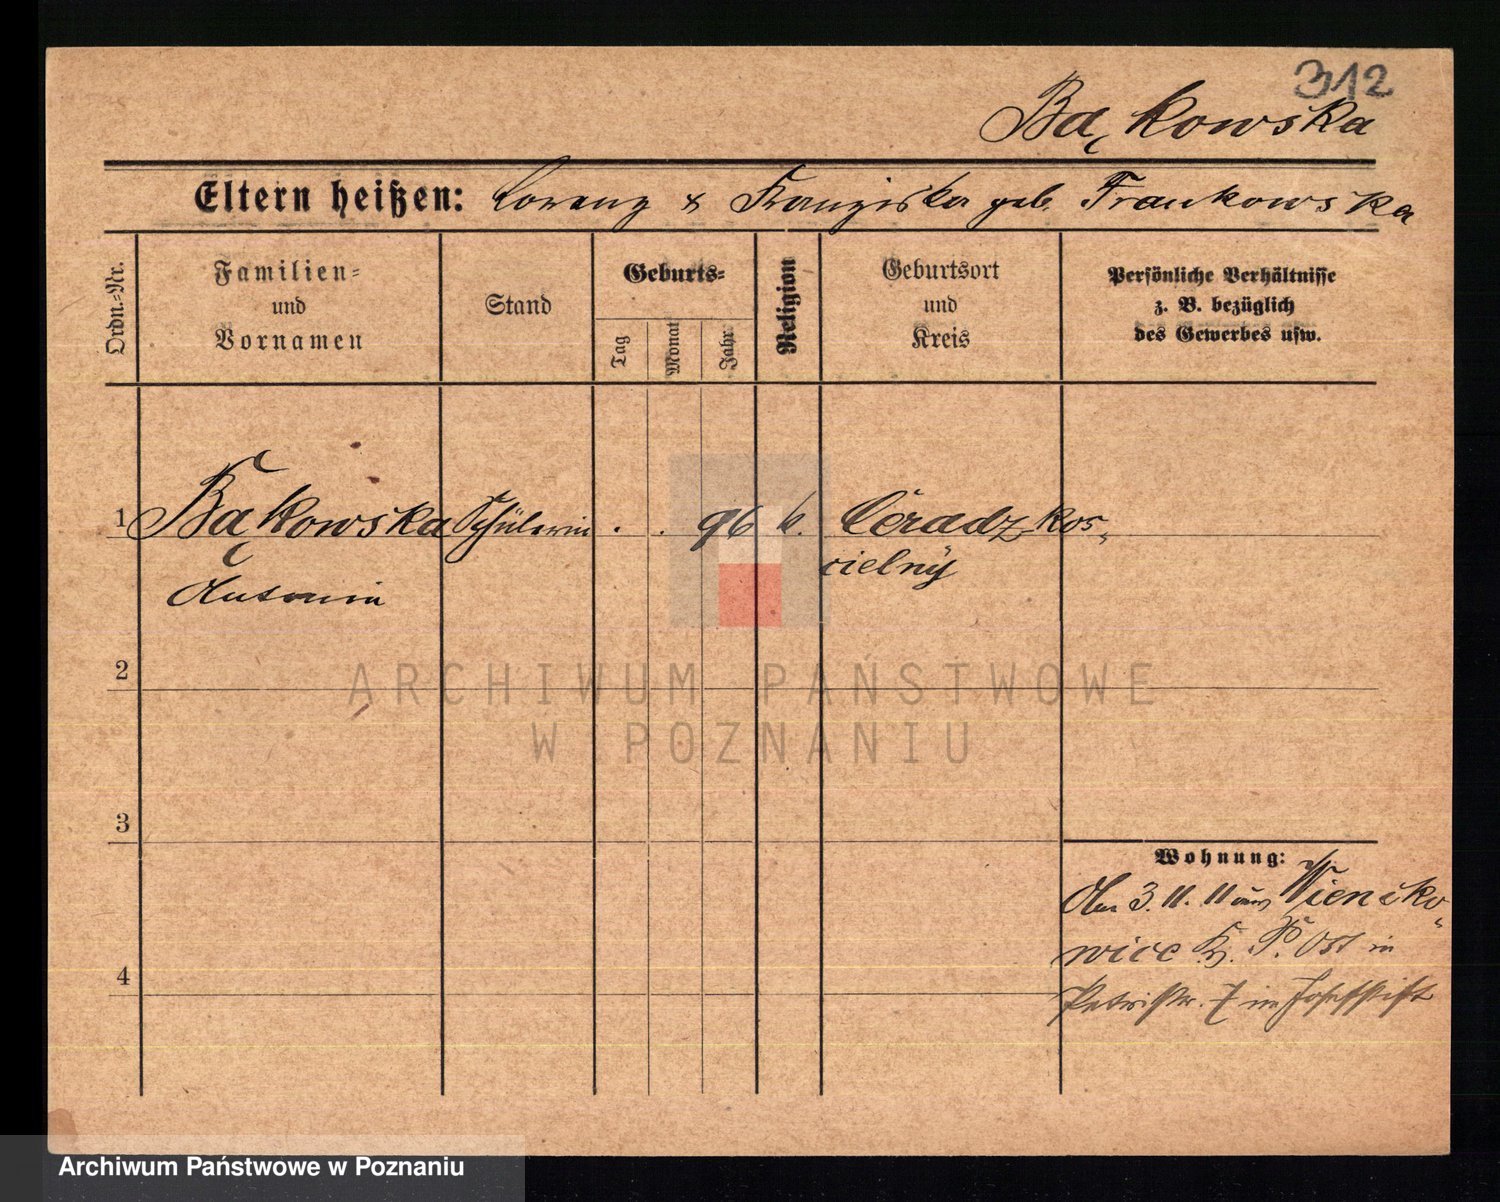 312
Bąkowska
Eltern heißen: Lorenz & Franziska geb. Frankowska
Ordn.-Nr.
Familien-
und
Vornamen
Stand
Geburts-
Tag
Monat
Jahr
Religion
Geburtsort
und
Kreis
Persönliche Verhältnisse
z. B. bezüglich
des Gewerbes usw.
1 Bąkowska Schülerin . . 96 k. Ceradz kos-
cielny
Antonie
2
3
4
Wohnung:
3. 11. 11 aus Wienczko-
wice Kr. P. Ost in
Petristr. 7 im Josefstift
ARCHIWUM PAŃSTWOWE
W POZNANIU
Archiwum Państwowe w Poznaniu